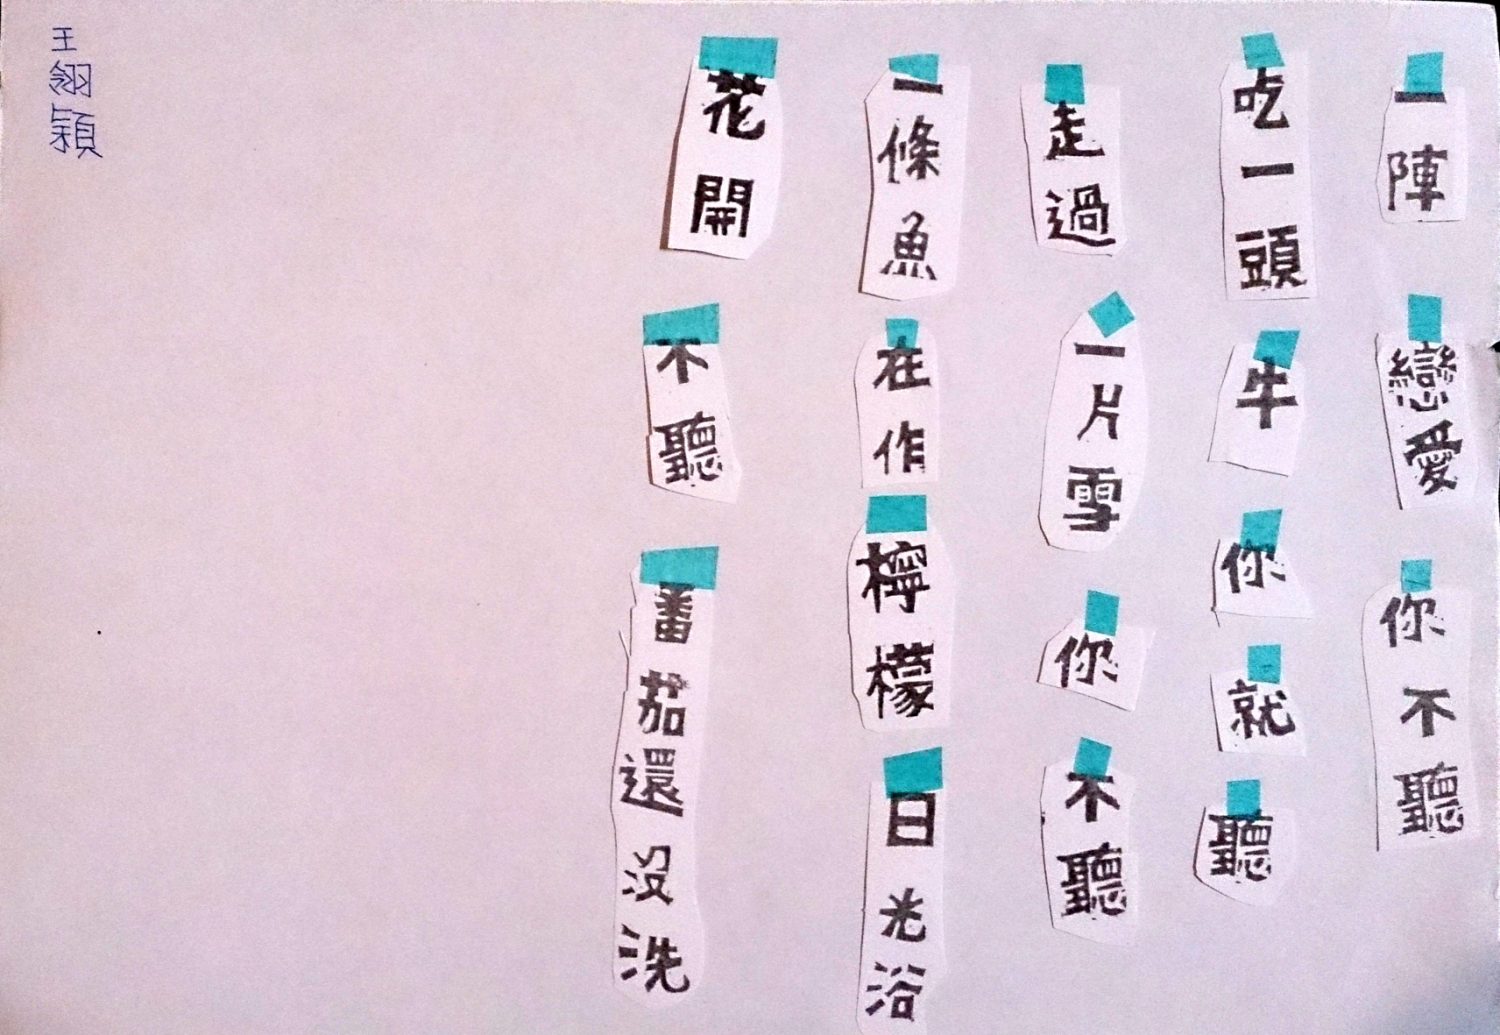 一陣戀愛你不聽
吃一頭牛你就聽
走過一片雪你不聽
一條魚在作檸檬日光浴
花開不聽番茄還沒洗
王翎穎